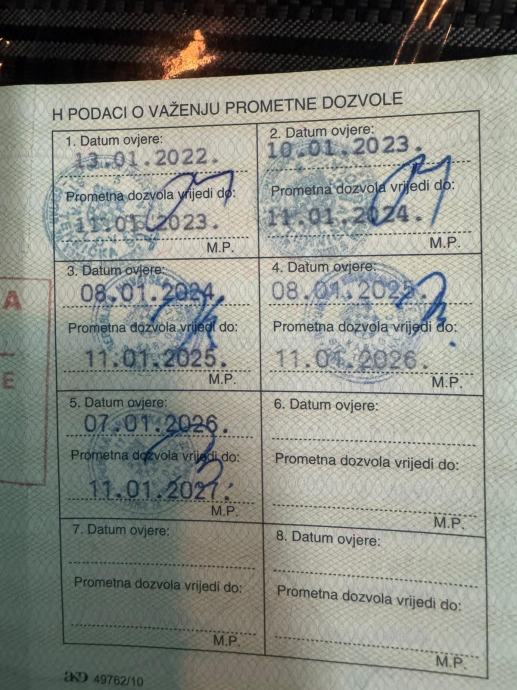 H PODACI O VAŽENJU PROMETNE DOZVOLE
1. Datum ovjere:
13.01.2022.
Prometna dozvola vrijedi do:
11.01.2023.
M.P.
2. Datum ovjere:
10.01.2023.
Prometna dozvola vrijedi do:
11.01.2024.
M.P.
3. Datum ovjere:
08.01.2024.
Prometna dozvola vrijedi do:
11.01.2025.
M.P.
4. Datum ovjere:
08.01.2025.
Prometna dozvola vrijedi do:
11.01.2026.
M.P.
5. Datum ovjere:
07.01.2026.
Prometna dozvola vrijedi do:
11.01.2027.
M.P.
6. Datum ovjere:
Prometna dozvola vrijedi do:
M.P.
7. Datum ovjere:
Prometna dozvola vrijedi do:
M.P.
8. Datum ovjere:
Prometna dozvola vrijedi do:
M.P.
A
E
AKD 49762/10